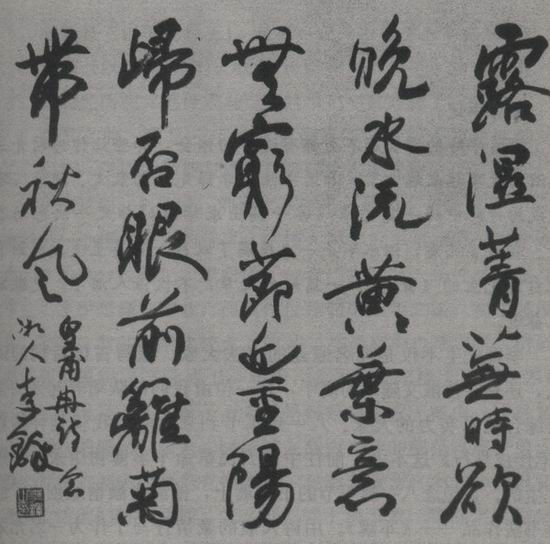 露濕菁蕪時欲
晚水流黄葉意
無窮節近重陽
歸否眼前籬菊
帶秋風
皇甫冉詩 念
湘人李鐸